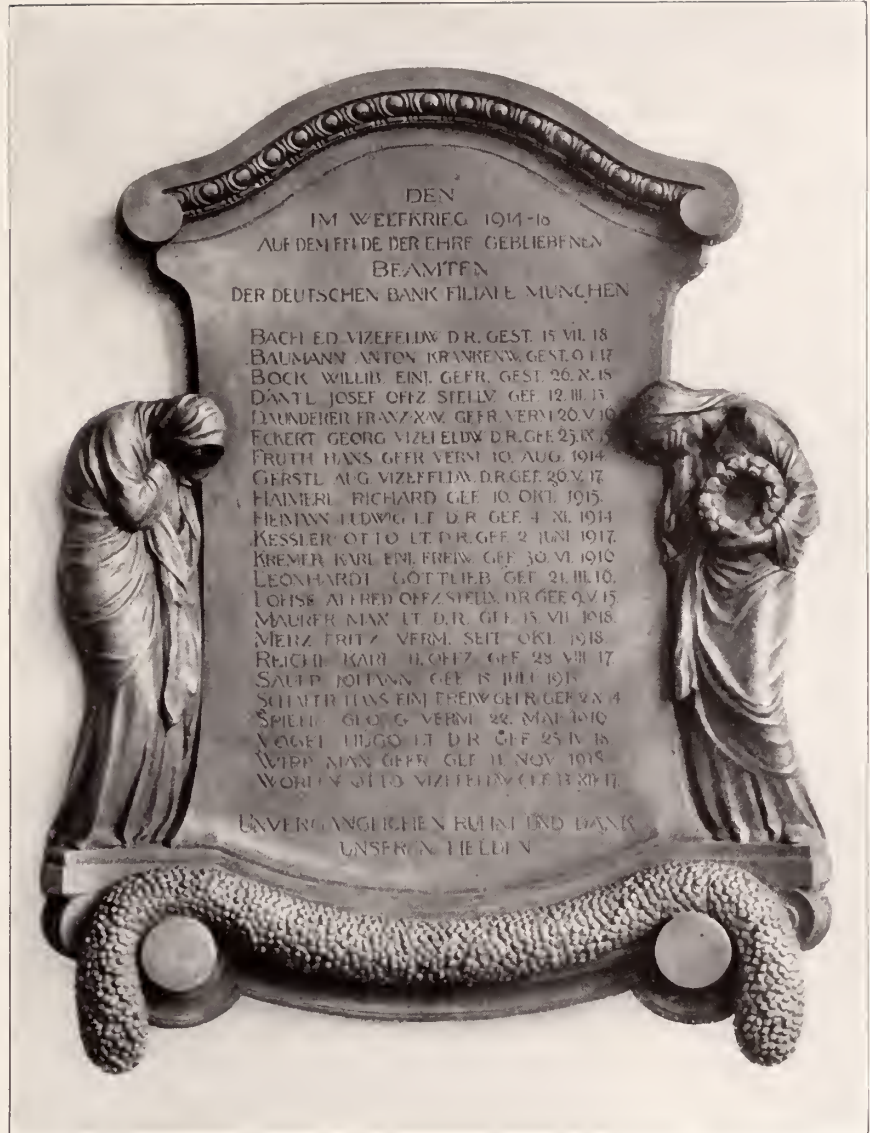 DEN
IM WELTKRIEG 1914-18
AUF DEM FELDE DER EHRE GEBLIEBENEN
BEAMTEN
DER DEUTSCHEN BANK FILIALE MÜNCHEN
BACH ED. VIZEFELDW. D.R. GEST. 15. VII. 18
BAUMANN ANTON KRANKENW. GEST. 17
BOCK WILLIB. EINJ. GEFR. GEST. 26. X. 18
DANTL JOSEF OFFZ. STELLV. GEF. 12. III. 15.
DAUNDERER FRANZ XAV. GEFR. VERM. 26. V. 16
ECKERT GEORG VIZEFELDW. D.R. GEF. 25. IX. 15
FRUTH HANS GEFR. VERM. 10. AUG. 1914.
GERSTL AUG. VIZEFELDW. D.R. GEF. 26. V. 17.
HAIMERL RICHARD GEF. 10. OKT. 1915.
HEIMANN LUDWIG LT. D.R. GEF. 4. XI. 1914
KESSLER OTTO LT. D.R. GEF. 2. JUNI 1917.
KREMER KARL EINJ. FREIW. GEF. 30. VI. 1916
LEONHARDT GOTTLIEB GEF. 21. III. 16.
LOHSE ALFRED OFFZ. STELLV. D.R. GEF. 9. V. 15.
MAURER MAX LT. D.R. GEF. 15. VII. 1918.
MERZ FRITZ VERM. SEIT OKT. 1918.
KARL U. OFFZ. GEF. 28. VIII. 17.
JOHANN GEF. JULI
HANS EINJ. FREIW. GEFR. GEF.
GEORG VERM. 22. MAI 1916
VOGEL HUGO LT. D.R. GEF. 25. IV. 18.
GEFR. GEF. 11. NOV.
OTTO VIZEFELDW. GEF. 13. XII. 17.
UNVERGÄNGLICHEN RUHM UND DANK
UNSEREN HELDEN